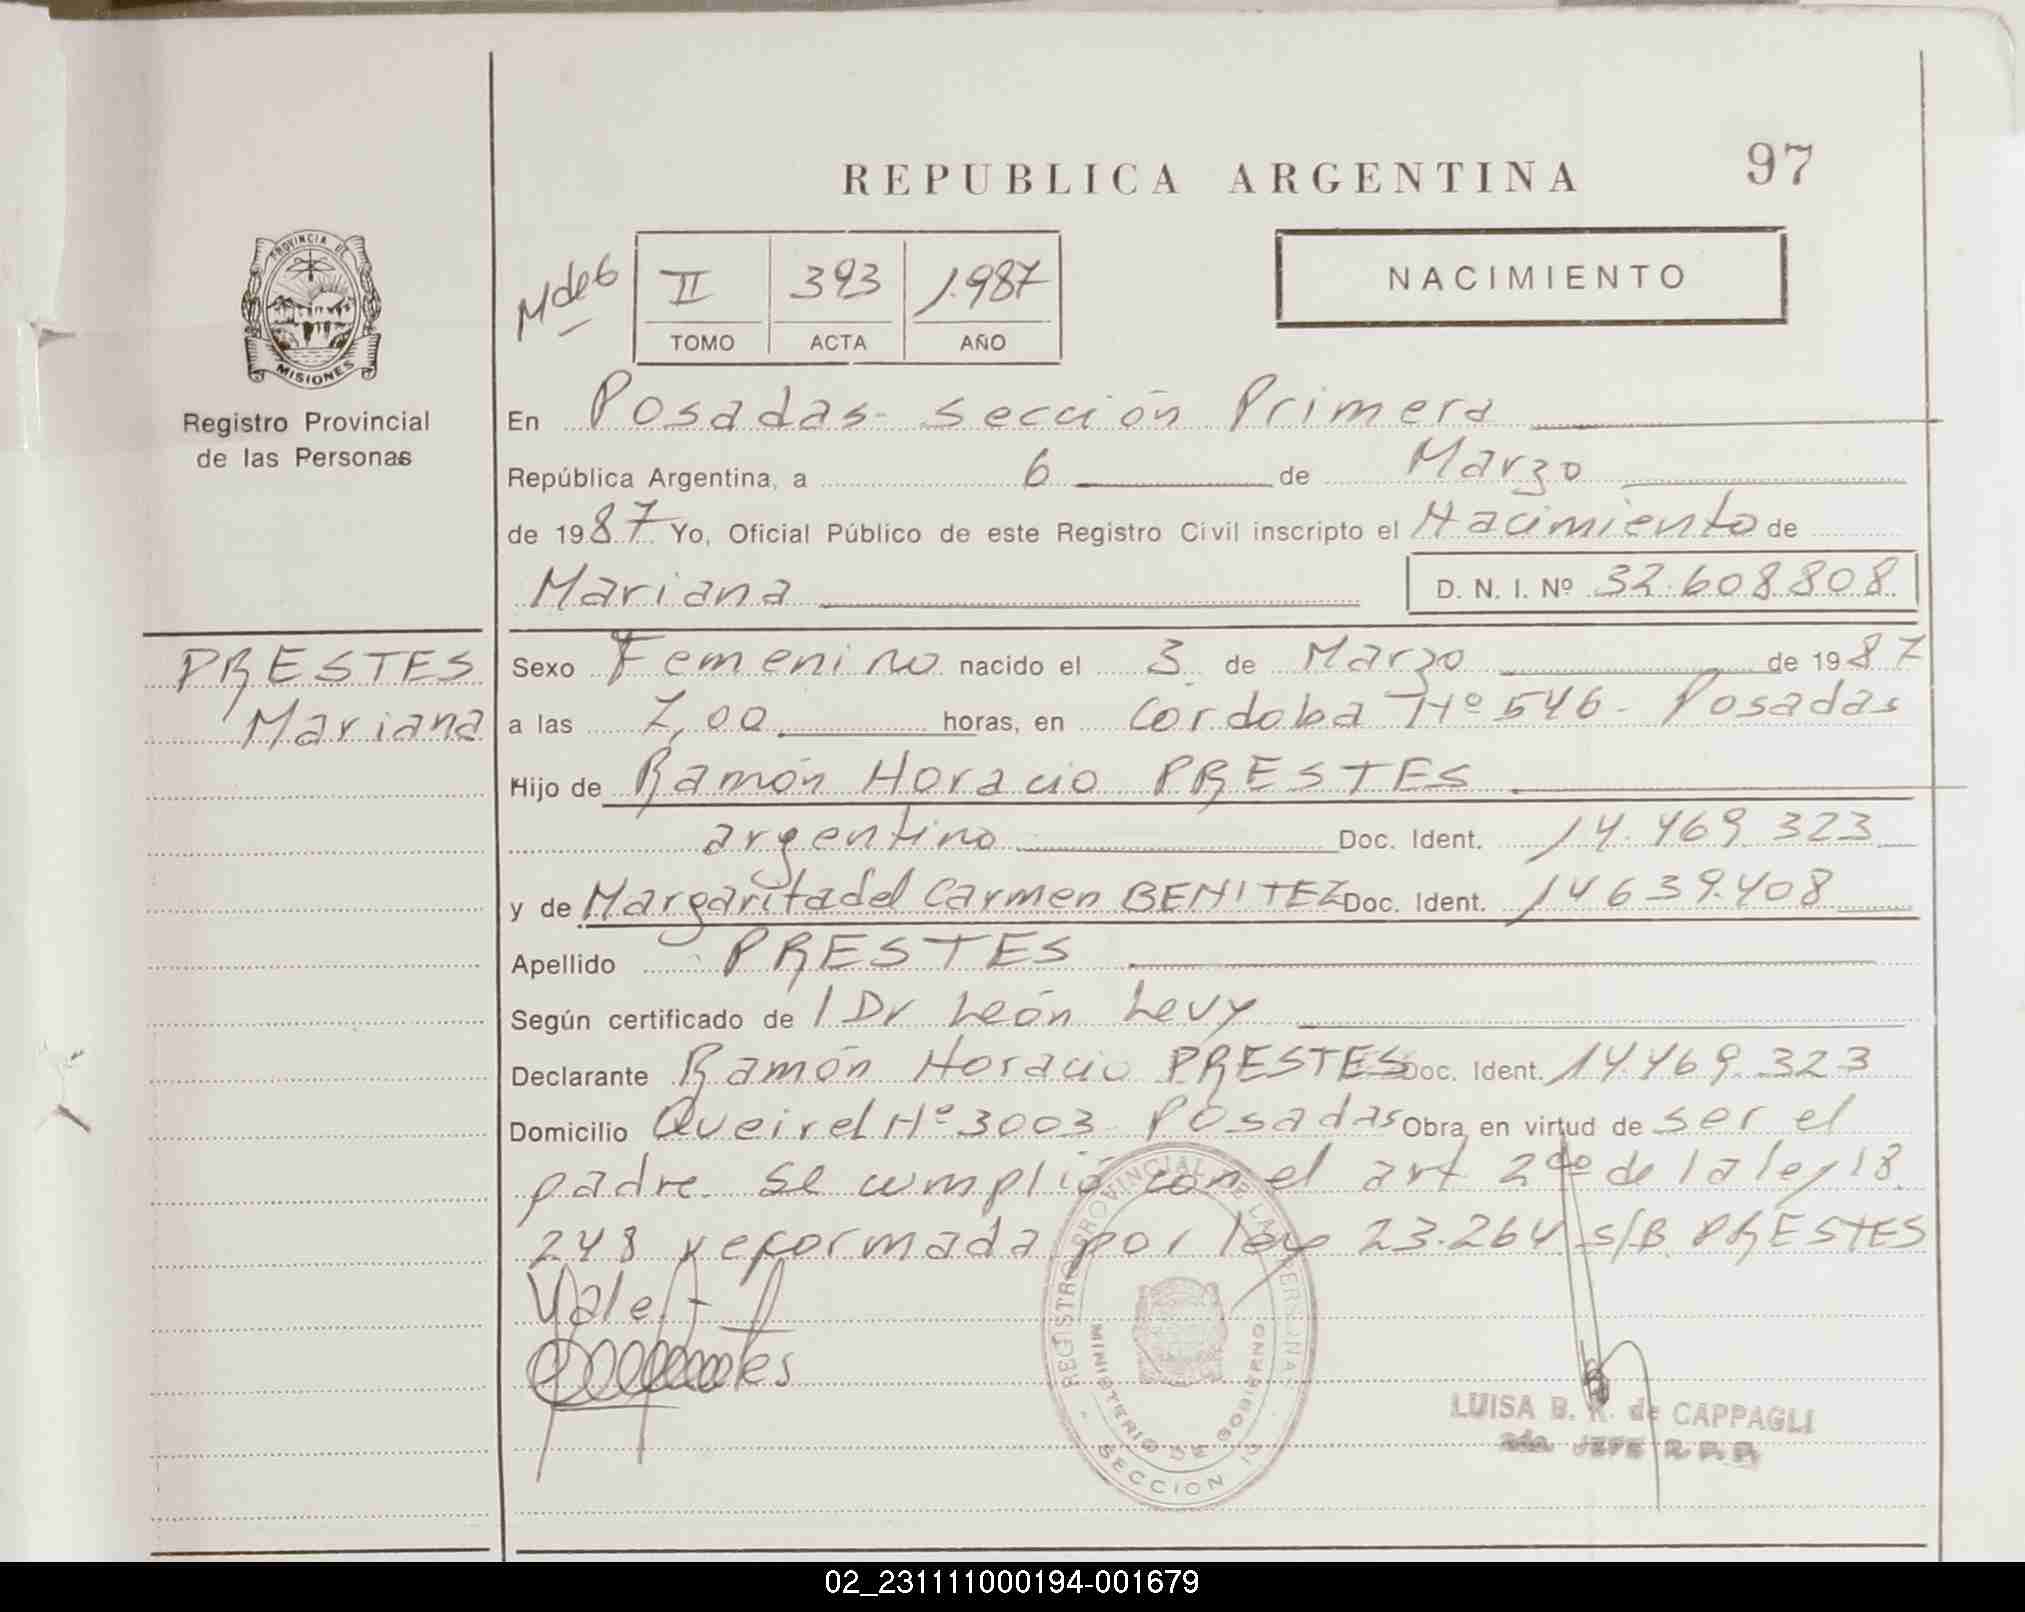 REPUBLICA ARGENTINA 97
PROVINCIA DE
MISIONES
Registro Provincial
de las Personas
M de 6
II 393 1.987
TOMO ACTA AÑO
NACIMIENTO
En Posadas- Sección Primera
República Argentina, a 6 de Marzo
de 1987 Yo, Oficial Público de este Registro Civil inscripto el Nacimiento de
Mariana D. N. I. Nº 32.608.808
PRESTES
Mariana
Sexo Femenino nacido el 3 de Marzo de 1987
a las 7,00 horas, en Córdoba Nº 546- Posadas
Hijo de Ramón Horacio PRESTES
argentino Doc. Ident. 14.469.323
y de Margarita del Carmen BENITEZ Doc. Ident. 14639.408
Apellido PRESTES
Según certificado de l Dr León Levy
Declarante Ramón Horacio PRESTES Doc. Ident. 14.469.323
Domicilio Queirel Nº 3003- Posadas Obra en virtud de ser el
padre. Se cumplió con el art 2do de la ley 18.
248 reformada por ley 23.264 s/B. PRESTES
Vale.-
REGISTRO PROVINCIAL DE LAS PERSONAS
MINISTERIO DE GOBIERNO
SECCION
LUISA B. K. de CAPPAGLI
2da. JEFE R. P. P.
02_231111000194-001679